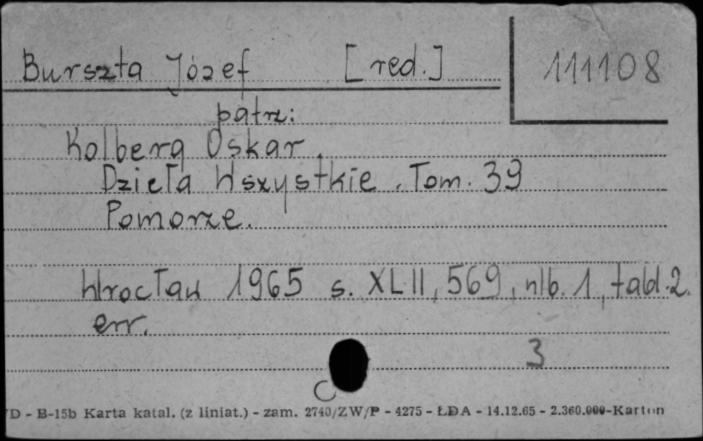 Burszta Józef [red.] 111108
patrz:
Kolberg Oskar
Dzieła Wszystkie. Tom. 39
Pomorze.
Wrocław 1965 s. XLII, 569, nlb. 1, tabl. 2.
err.
3
C
D - B-15b Karta katal. (z liniat.) - zam. 2740/ZW/P - 4275 - ŁDA - 14.12.65 - 2.360.000-Karton